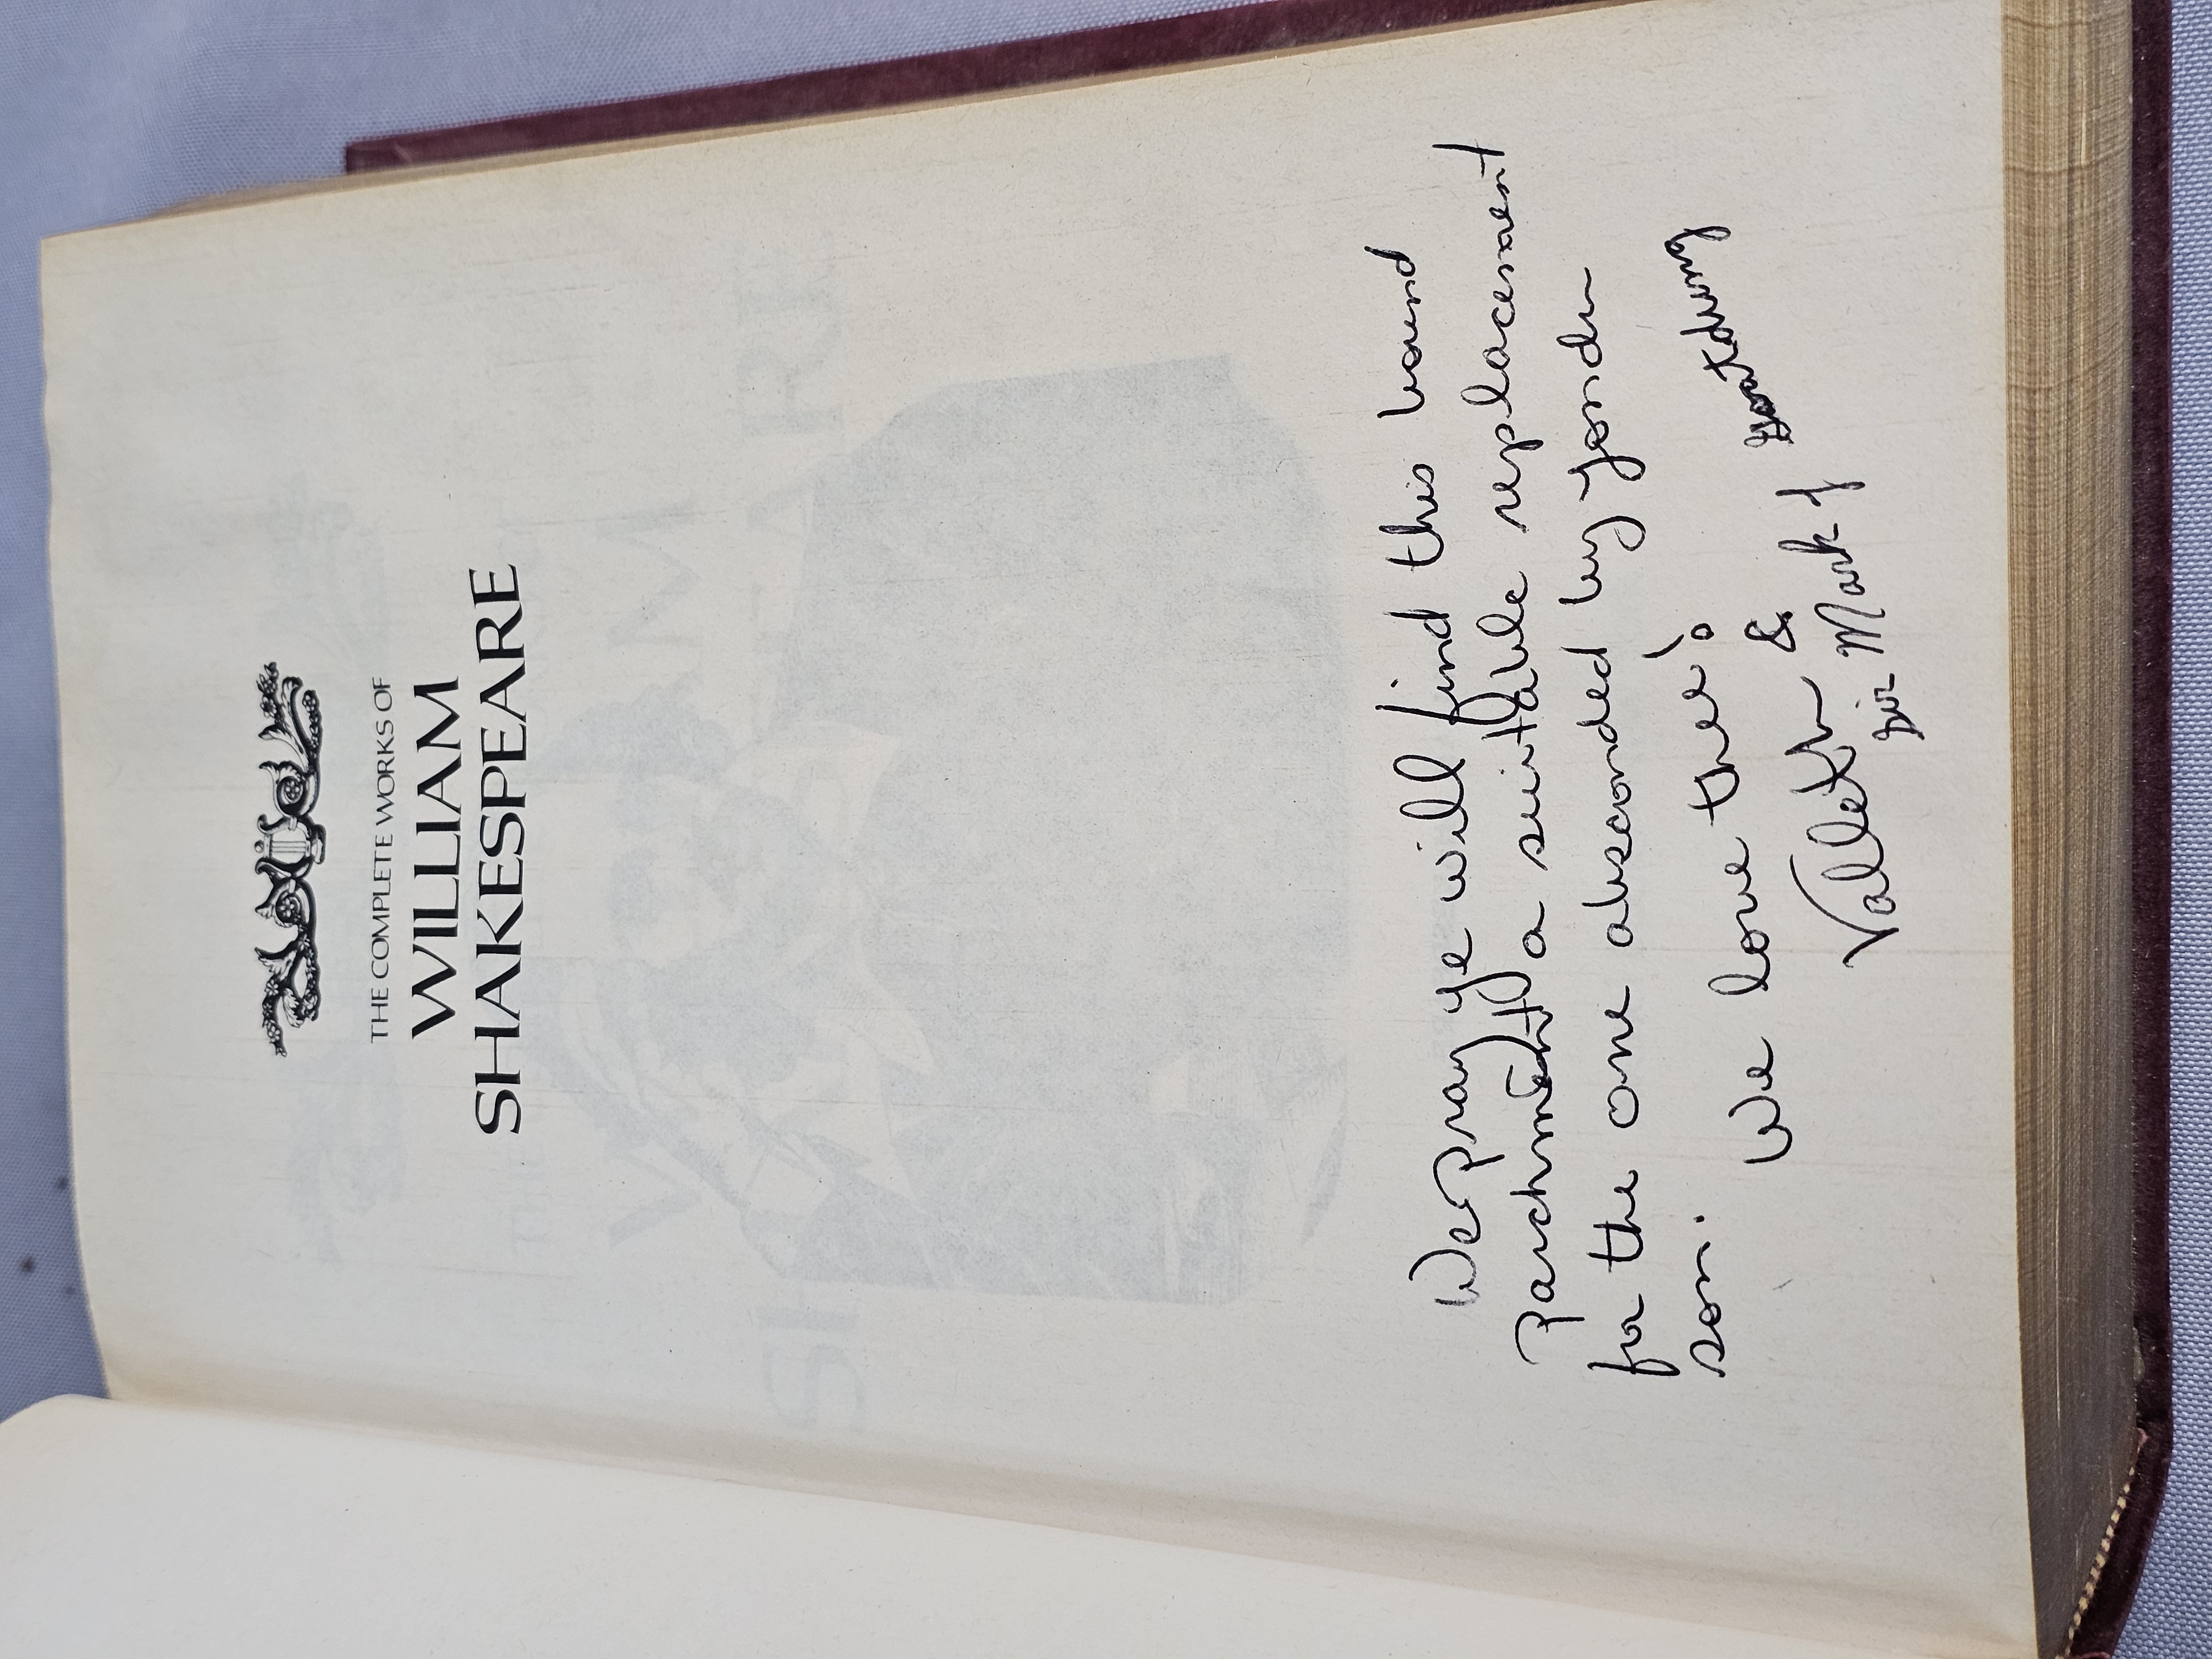 THE COMPLETE WORKS OF
WILLIAM
SHAKESPEARE
We pray ye will find this bound
parchment a suitable replacement
for the one absconded by yonder
son.
We love thee!
&
Sir Mark